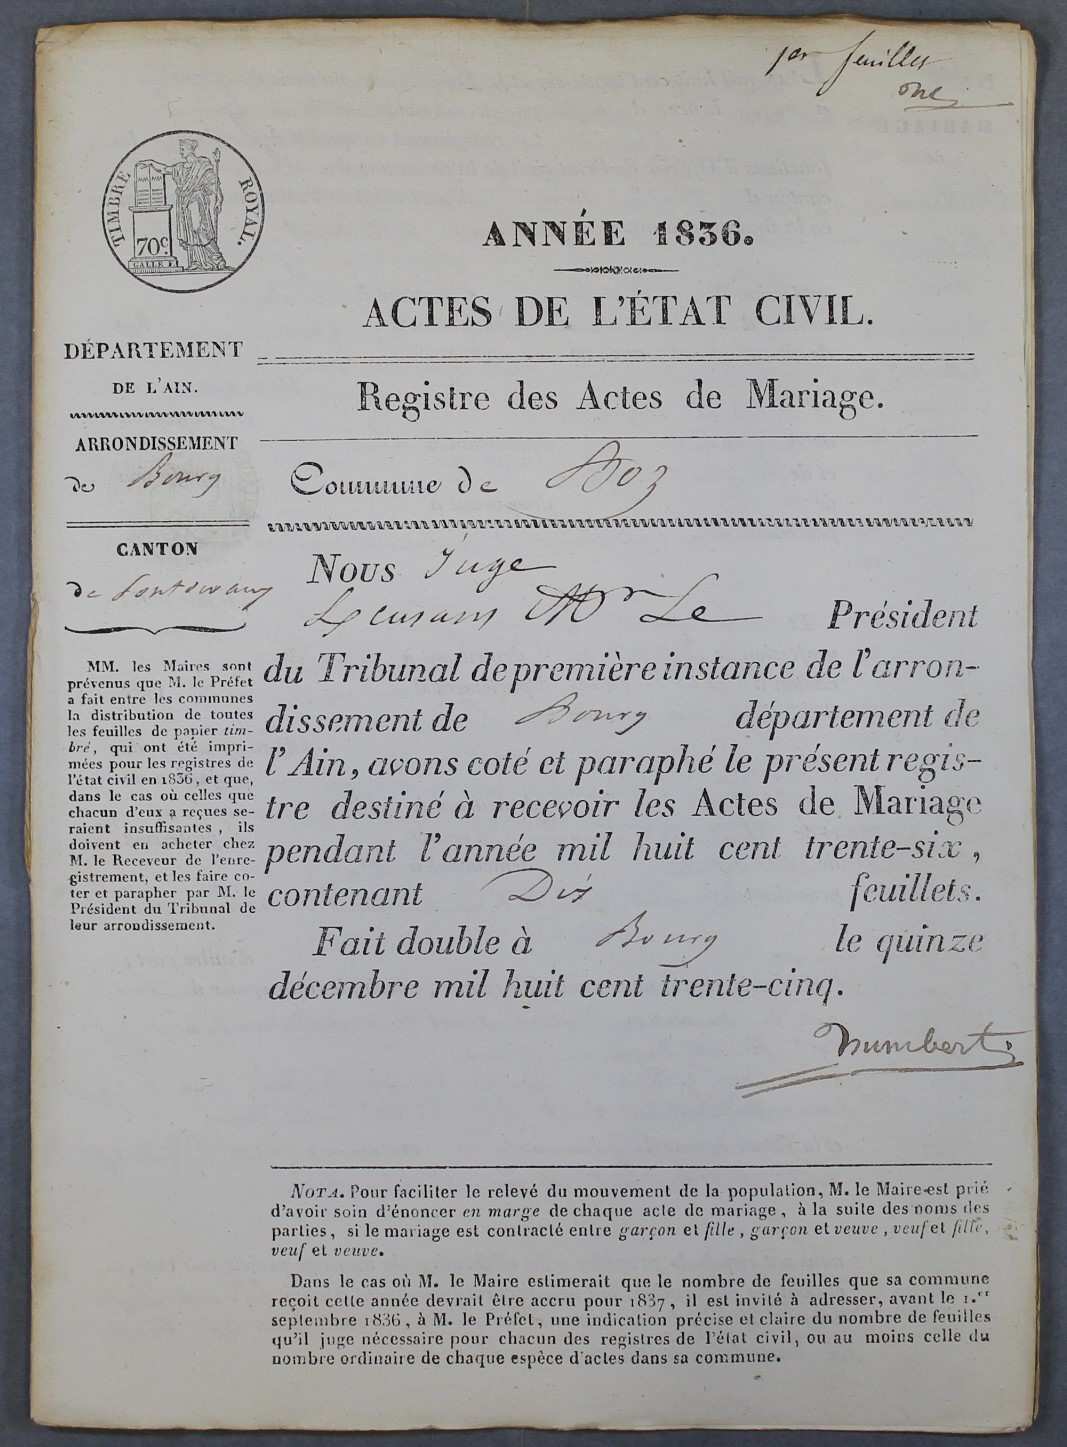 1er feuillet
TIMBRE ROYAL.
70c.
ANNÉE 1836.
ACTES DE L'ÉTAT CIVIL.
Registre des Actes de Mariage.
Commune de Boz
DÉPARTEMENT
DE L'AIN.
ARRONDISSEMENT
de Bourg
CANTON
de Pontdevaux
MM. les Maires sont
prévenus que M. le Préfet
a fait entre les communes
la distribution de toutes
les feuilles de papier tim-
bré, qui ont été impri-
mées pour les registres de
l'état civil en 1836, et que,
dans le cas où celles que
chacun d'eux a reçues se-
raient insuffisantes, ils
doivent en acheter chez
M. le Receveur de l'enre-
gistrement, et les faire co-
ter et parapher par M. le
Président du Tribunal de
leur arrondissement.
Nous Juge
Mr Le Président
du Tribunal de première instance de l'arron-
dissement de Bourg département de
l'Ain, avons coté et paraphé le présent regis-
tre destiné à recevoir les Actes de Mariage
pendant l'année mil huit cent trente-six,
contenant Dix feuillets.
Fait double à Bourg le quinze
décembre mil huit cent trente-cinq.
humbert
NOTA. Pour faciliter le relevé du mouvement de la population, M. le Maire est prié
d'avoir soin d'énoncer en marge de chaque acte de mariage, à la suite des noms des
parties, si le mariage est contracté entre garçon et fille, garçon et veuve, veuf et fille,
veuf et veuve.
Dans le cas où M. le Maire estimerait que le nombre de feuilles que sa commune
reçoit cette année devrait être accru pour 1837, il est invité à adresser, avant le 1.er
septembre 1836, à M. le Préfet, une indication précise et claire du nombre de feuilles
qu'il juge nécessaire pour chacun des registres de l'état civil, ou au moins celle du
nombre ordinaire de chaque espèce d'actes dans sa commune.